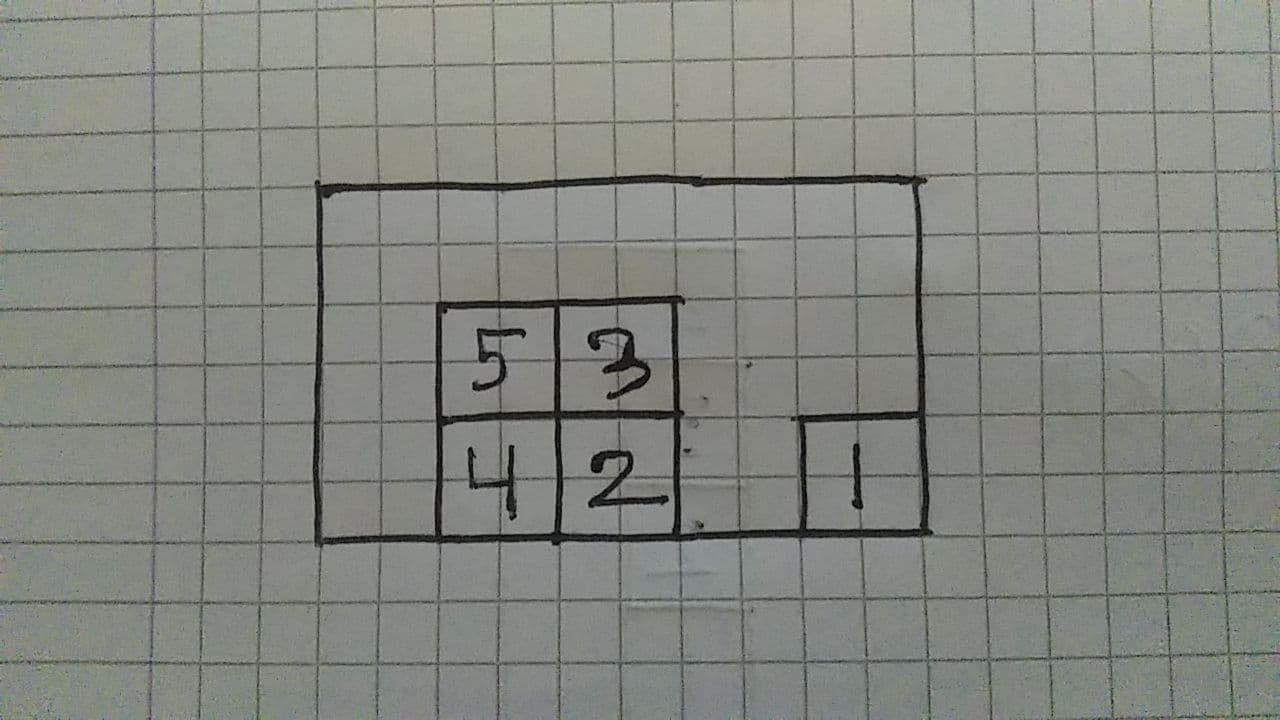 5 3
4 2 1